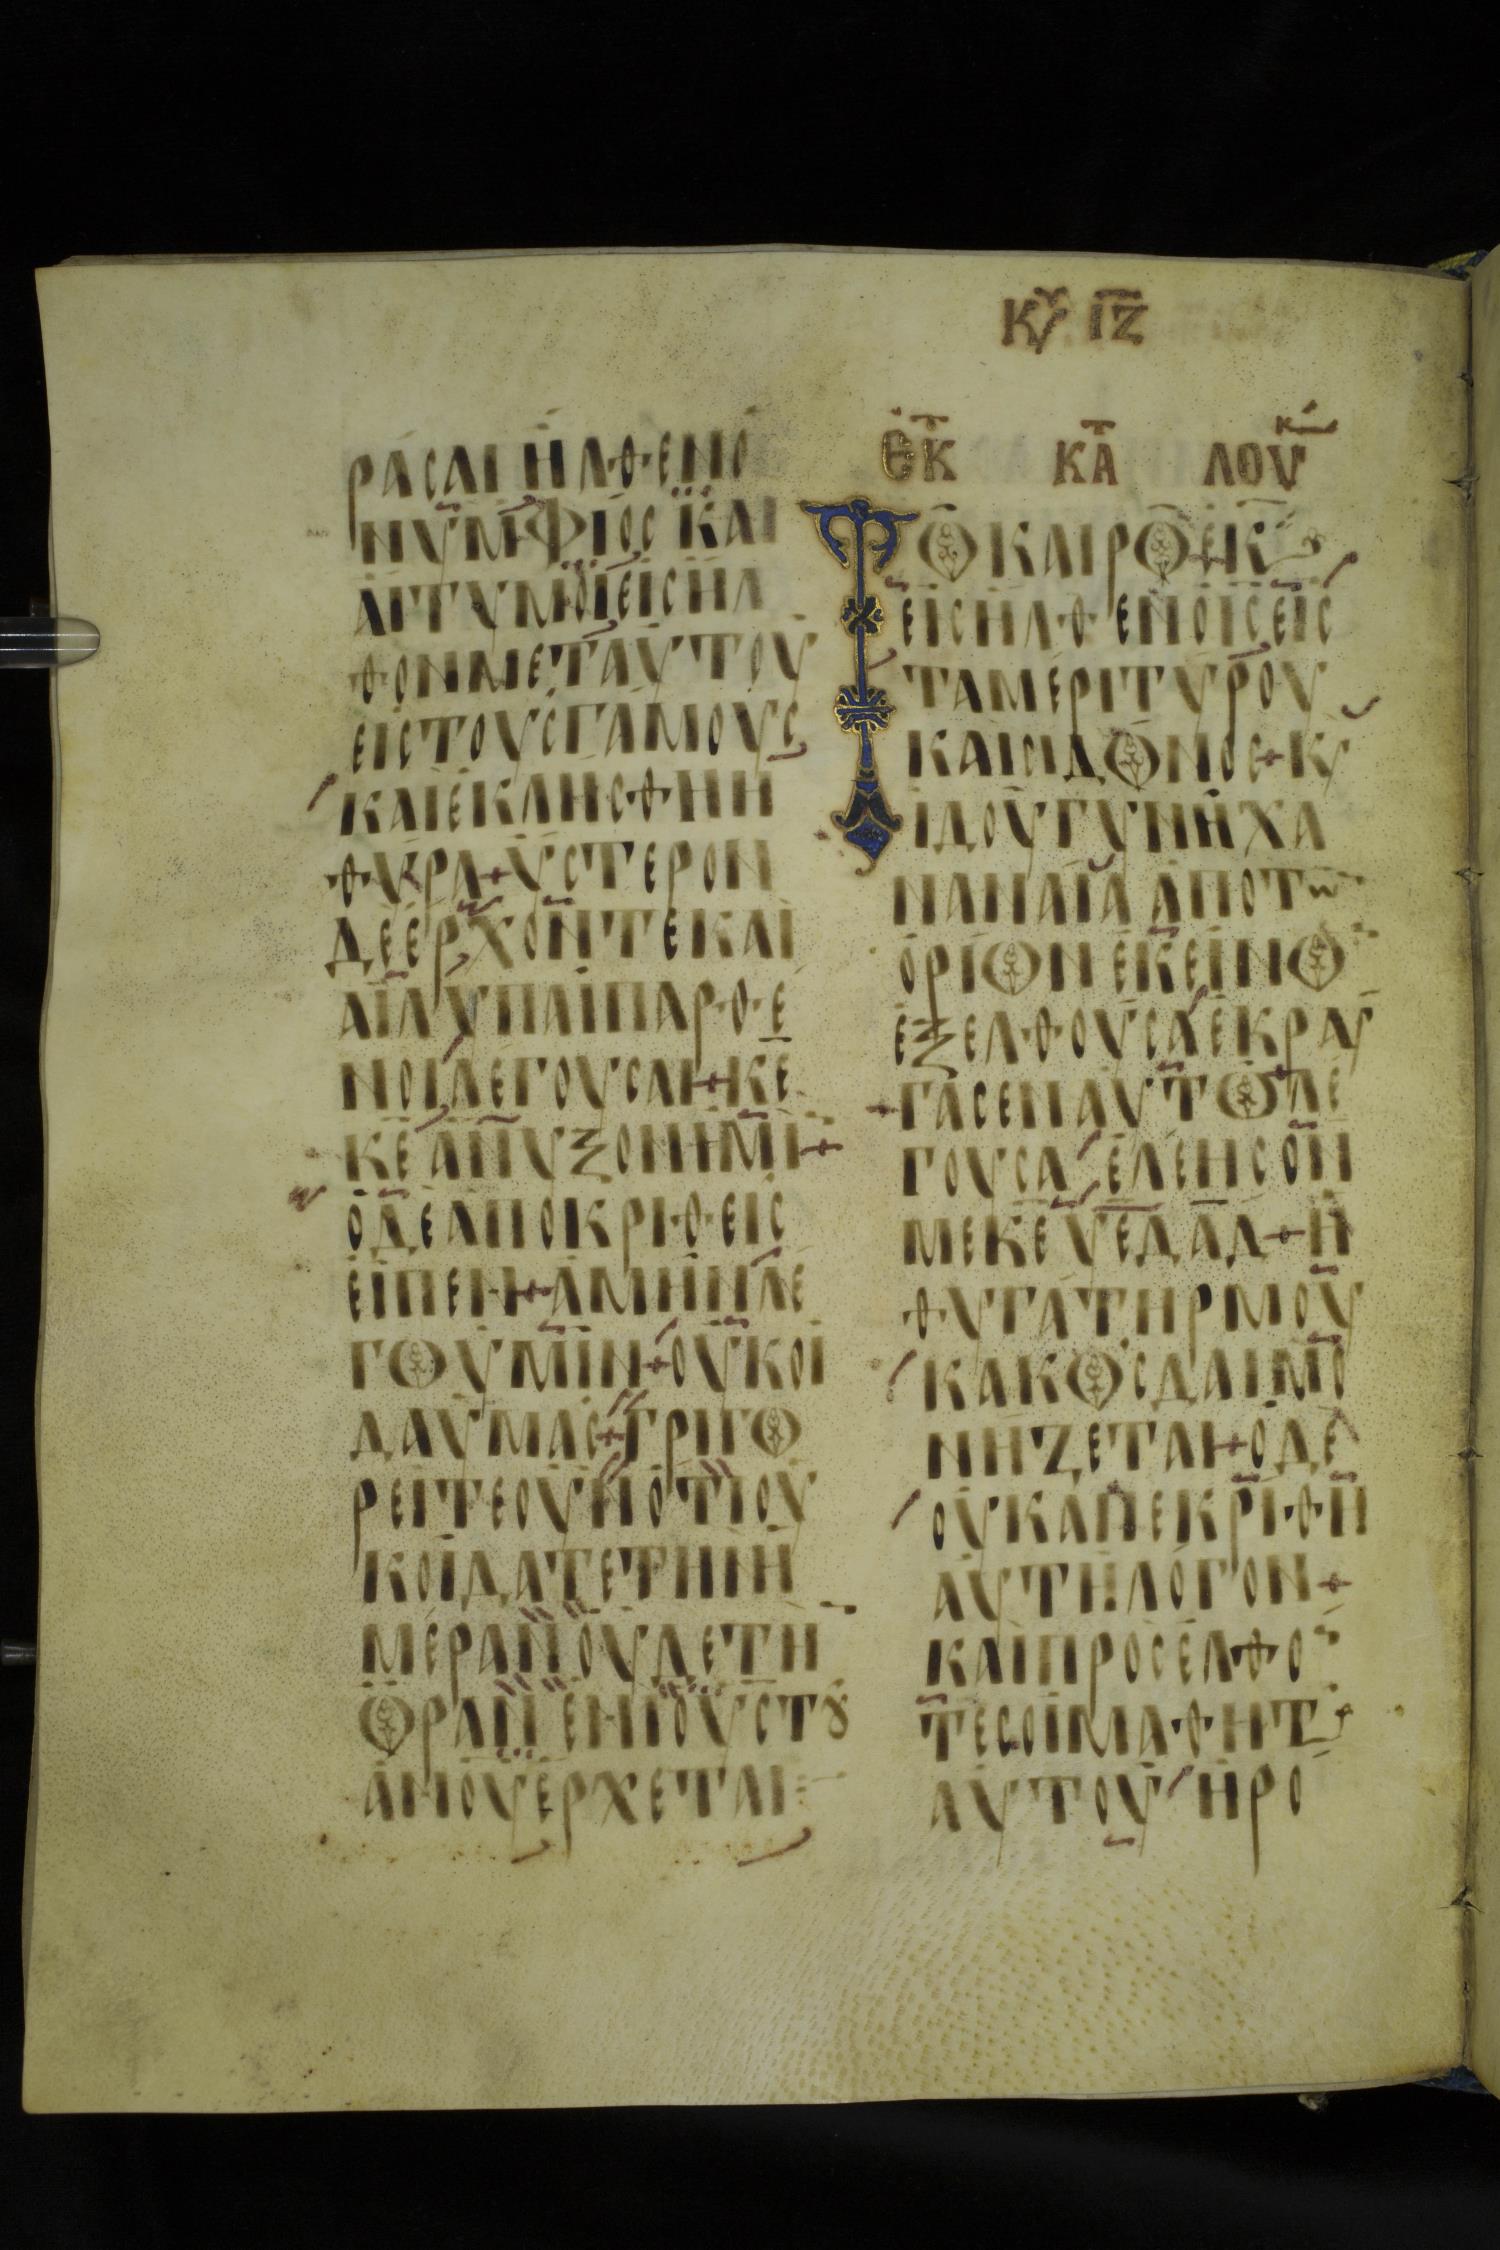 ΚΥ ΙΖ
ΡΑΣΑΙ ΗΛΘΕΝΟ
ΝΥΜΦΙΟΣ ΚΑΙ
ΑΙΓΥΜΟΙΕΙΣΗΛ
ΘΟΝΜΕΤΑΥΤΟΥ
ΕΙΣΤΟΥΣΓΑΜΟΥΣ
ΚΑΙΕΚΛΗΣΘΗΗ
ΘΥΡΑ + ΥΣΤΕΡΟΝ
ΔΕΕΡΧΟΝΤΕΚΑΙ
ΑΙΛΥΠΑΙΠΑΡΘΕ
ΝΟΙΛΕΓΟΥΣΑΙ + ΚΕ
ΚΕ ΑΝΥΞΟΝΗΜΙ +
ΟΔΕΑΠΟΚΡΙΘΕΙΣ
ΕΙΠΕΝ + ΑΜΗΝΛΕ
ΓΩΥΜΙΝ + ΟΥΚΟΙ
ΔΑΥΜΑΣ + ΓΡΙΓΩ
ΡΕΙΤΕΟΥΝΟΤΙΟΥ
ΚΟΙΔΑΤΕΤΗΝΗ
ΜΕΡΑΝΟΥΔΕΤΗ
ΩΡΑΝ ΕΝΗΟΥΣΤΟΥ
ΑΝΟΥΕΡΧΕΤΑΙ
ΕΚ ΚΑΤ ΛΟΥΚ
ΤΩΚΑΙΡΩΕΚ
ΕΙΣΗΛΘΕΝΟΙΣΕΙΣ
ΤΑΜΕΡΙΤΥΡΟΥ
ΚΑΙΣΙΔΩΝΟΣ + Κ
ΙΔΟΥΓΥΝΗΧΑ
ΝΑΝΑΙΑ ΑΠΟΤω
ΟΡΙΩΝΕΚΕΙΝΩ
ΕΞΕΛΘΟΥΣΑΕΚΡΑΥ
+ ΓΑΣΕΝΑΥΤΩΛΕ
ΓΟΥΣΑ ΕΛΕΗΣΟΝ
ΜΕΚΕΥΕΔΑΔ + Η
ΘΥΓΑΤΗΡΜΟΥ
ΚΑΚΩΣΔΑΙΜΟ
ΝΗΖΕΤΑΙ + ΟΔΕ
ΟΥΚΑΠΕΚΡΙΘΗ
ΑΥΤΗΛΟΓΟΝ +
ΚΑΙΠΡΟΣΕΛΘΟ
ΤΕΣΟΙΜΑΘΗΤ
ΑΥΤΟΥ ΗΡΟ